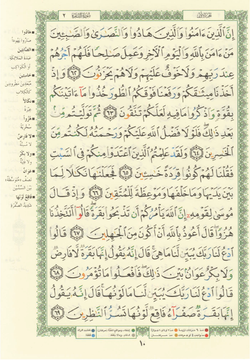 إِنَّ ٱلَّذِينَ ءَامَنُوا۟ وَٱلَّذِينَ هَادُوا۟ وَٱلنَّصَـٰرَىٰ وَٱلصَّـٰبِـِٔينَ
مَنْ ءَامَنَ بِٱللَّهِ وَٱلْيَوْمِ ٱلْـَٔاخِرِ وَعَمِلَ صَـٰلِحًا فَلَهُمْ أَجْرُهُمْ
عِندَ رَبِّهِمْ وَلَا خَوْفٌ عَلَيْهِمْ وَلَا هُمْ يَحْزَنُونَ ٦٢ وَإِذْ
أَخَذْنَا مِيثَـٰقَكُمْ وَرَفَعْنَا فَوْقَكُمُ ٱلطُّورَ خُذُوا۟ مَآ ءَاتَيْنَـٰكُم
بِقُوَّةٍ وَٱذْكُرُوا۟ مَا فِيهِ لَعَلَّكُمْ تَتَّقُونَ ٦٣ ثُمَّ تَوَلَّيْتُم مِّنۢ
بَعْدِ ذَٰلِكَ فَلَوْلَا فَضْلُ ٱللَّهِ عَلَيْكُمْ وَرَحْمَتُهُۥ لَكُنتُم مِّنَ
ٱلْخَـٰسِرِينَ ٦٤ وَلَقَدْ عَلِمْتُمُ ٱلَّذِينَ ٱعْتَدَوْا۟ مِنكُمْ فِى ٱلسَّبْتِ
فَقُلْنَا لَهُمْ كُونُوا۟ قِرَدَةً خَـٰسِـِٔينَ ٦٥ فَجَعَلْنَـٰهَا نَكَـٰلًا لِّمَا
بَيْنَ يَدَيْهَا وَمَا خَلْفَهَا وَمَوْعِظَةً لِّلْمُتَّقِينَ ٦٦ وَإِذْ قَالَ
مُوسَىٰ لِقَوْمِهِۦٓ إِنَّ ٱللَّهَ يَأْمُرُكُمْ أَن تَذْبَحُوا۟ بَقَرَةً قَالُوٓا۟ أَتَتَّخِذُنَا
هُزُوًا قَالَ أَعُوذُ بِٱللَّهِ أَنْ أَكُونَ مِنَ ٱلْجَـٰهِلِينَ ٦٧
قَالُوا۟ ٱدْعُ لَنَا رَبَّكَ يُبَيِّن لَّنَا مَا هِىَ قَالَ إِنَّهُۥ يَقُولُ إِنَّهَا بَقَرَةٌ لَّا فَارِضٌ
وَلَا بِكْرٌ عَوَانٌۢ بَيْنَ ذَٰلِكَ فَٱفْعَلُوا۟ مَا تُؤْمَرُونَ ٦٨
قَالُوا۟ ٱدْعُ لَنَا رَبَّكَ يُبَيِّن لَّنَا مَا لَوْنُهَا قَالَ إِنَّهُۥ يَقُولُ
إِنَّهَا بَقَرَةٌ صَفْرَآءُ فَاقِعٌ لَّوْنُهَا تَسُرُّ ٱلنَّـٰظِرِينَ ٦٩
١٠